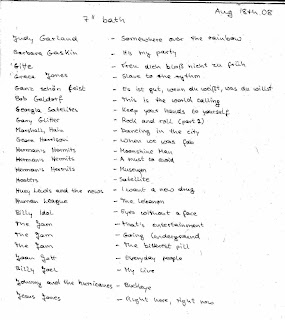 Aug 18th 08
7" bath
Judy Garland - Somewhere over the rainbow
Barbara Gaskin - It's my party
Gitte - Freu dich bloß nicht zu früh
Grace Jones - Slave to the rythm
Ganz schön feist - Es ist gut, wenn du weißt, was du willst
Bob Geldorf - This is the world calling
Georgia Satelites - Keep your hands to yourself
Gary Glitter - Rock and roll (part 2)
Marshall, Hain - Dancing in the city
George Harrison - When we was fab
Herman's Hermits - Moonshine Man
Herman's Hermits - A must to avoid
Herman's Hermits - Museum
Hooters - Satellite
Huey Lewis and the news - I want a new drug
Human League - The Lebanon
Billy Idol - Eyes without a face
The Jam - that's entertainment
The Jam - Going Underground
The Jam - The bitterest pill
Joan Jett - Everyday people
Billy Joel - My live
Johnny and the hurricanes - Buckeye
Jesus Jones - Right here, right now